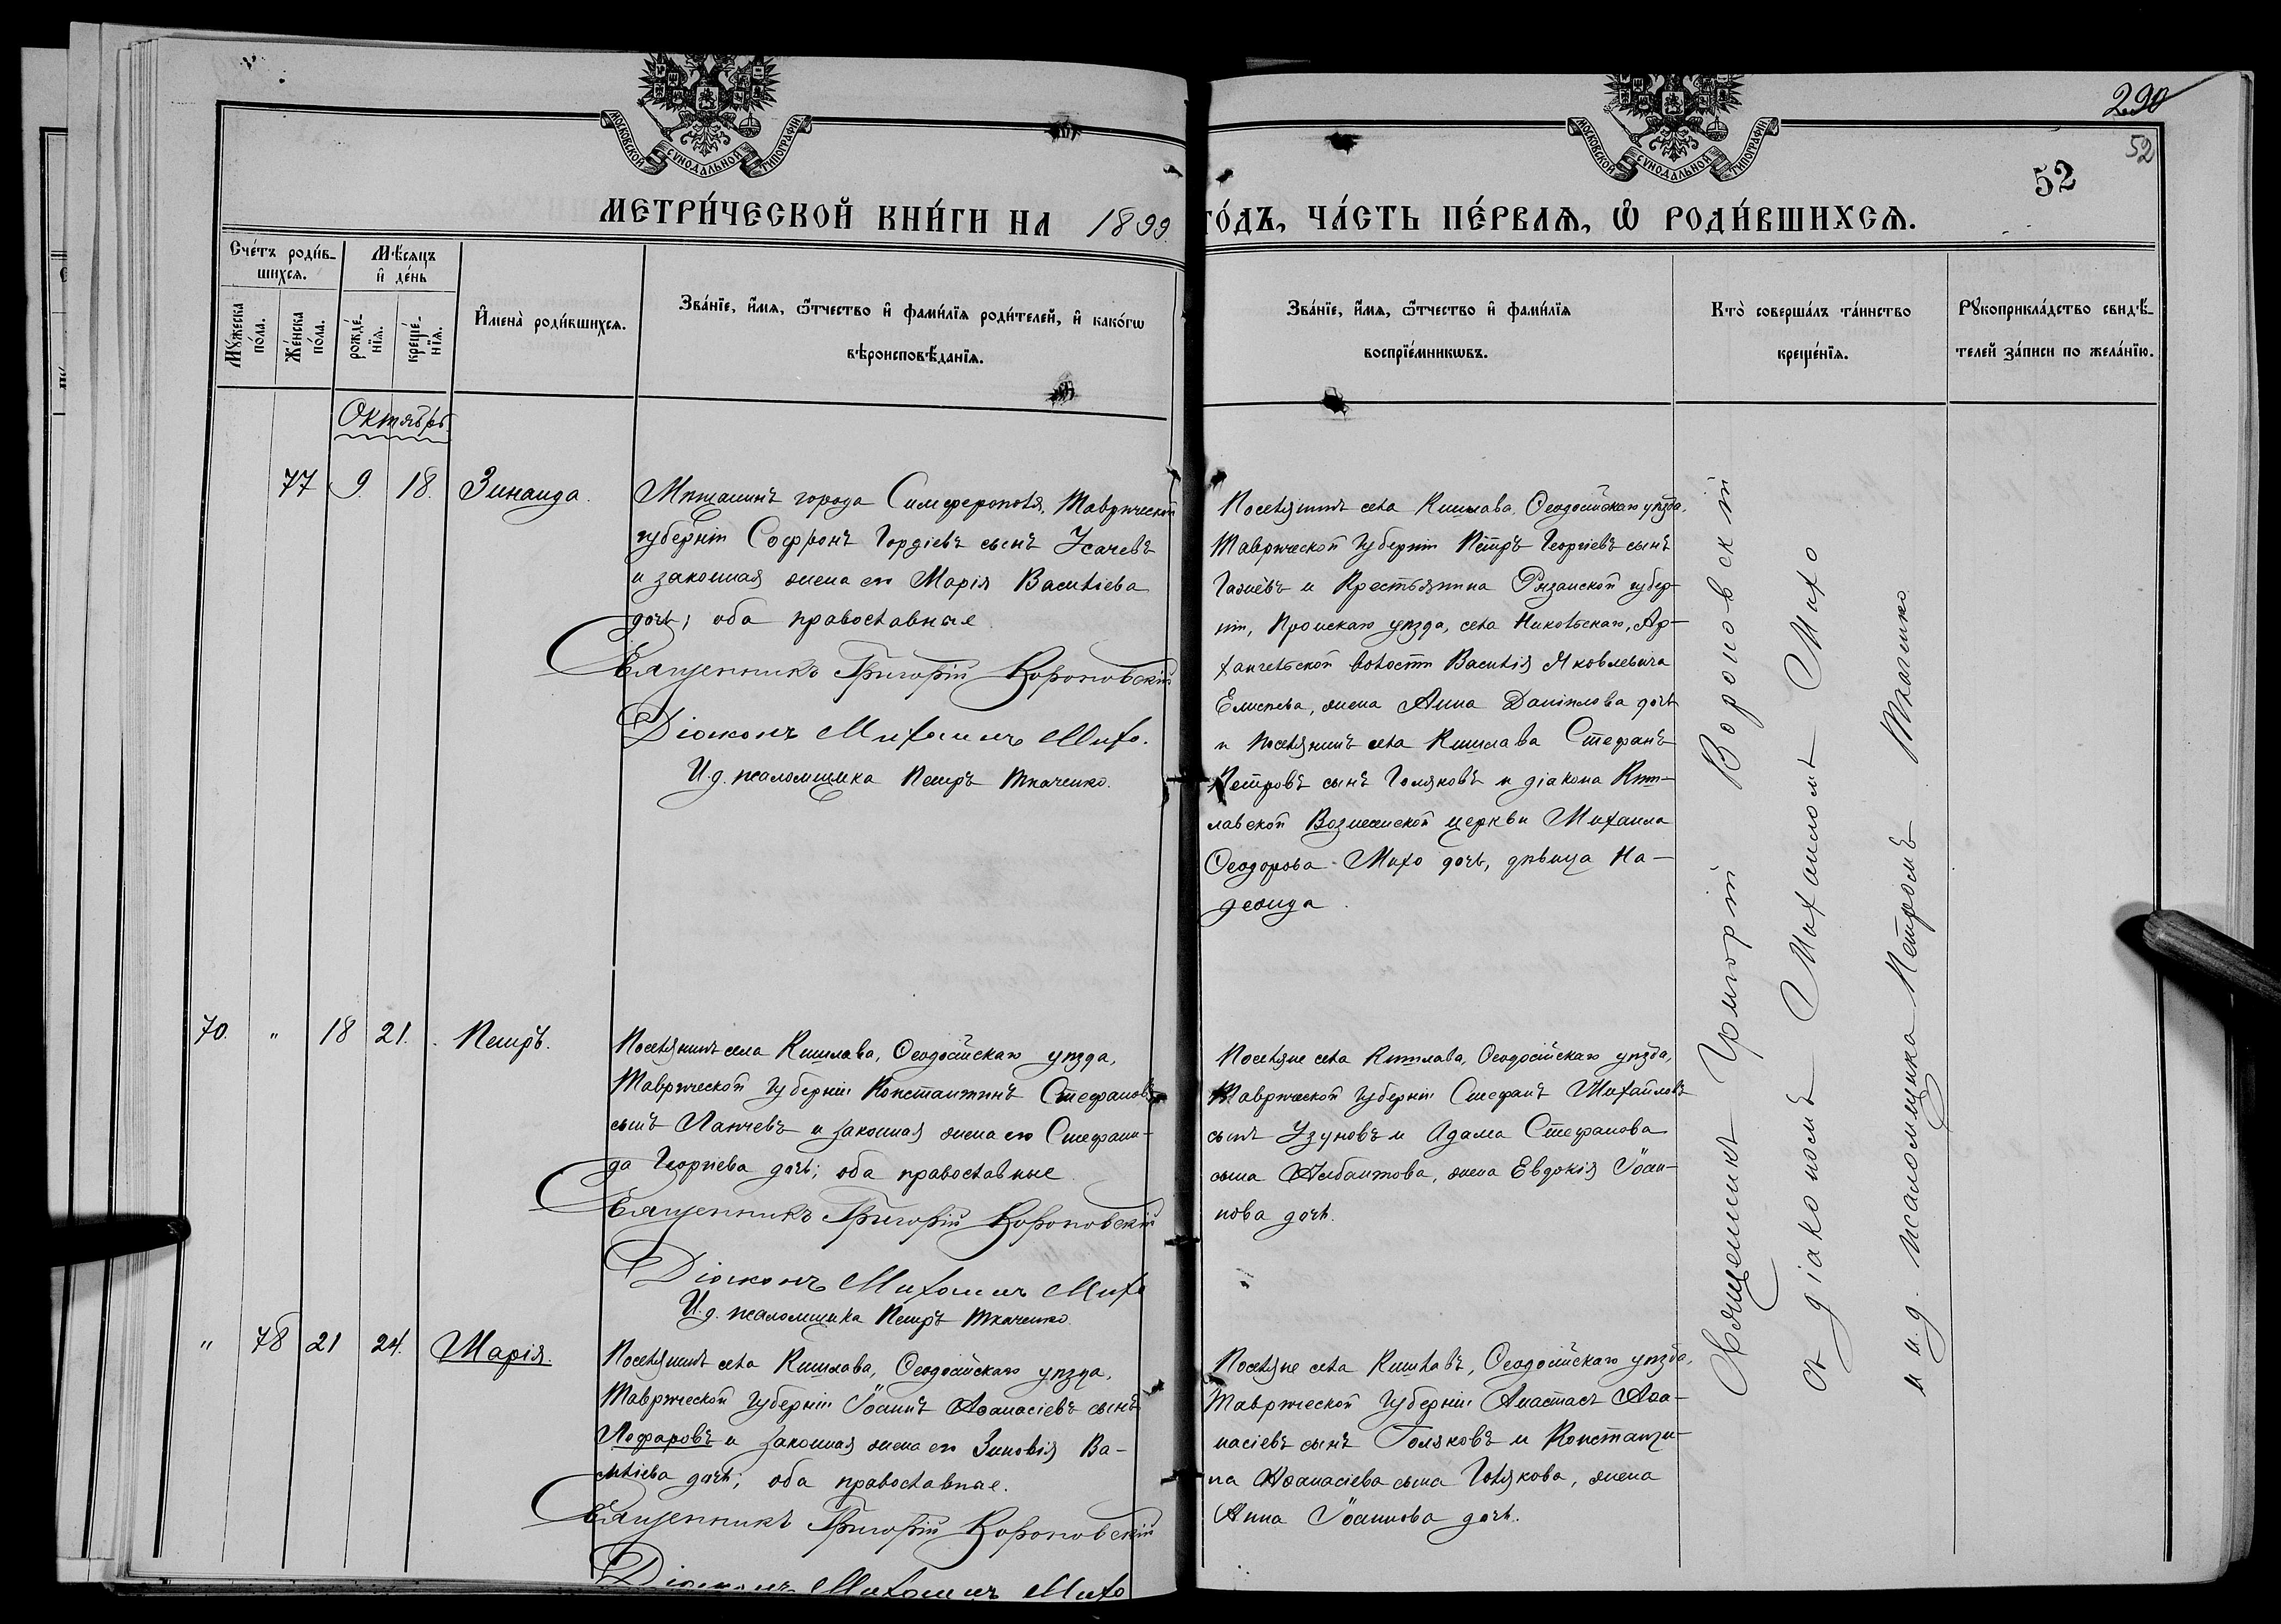 290
52
52
МОСКОВСКОЙ СѴНОДАЛЬНОЙ ТИПОГРАФІИ
МОСКОВСКОЙ СѴНОДАЛЬНОЙ ТИПОГРАФІИ
МЕТРИ́ЧЕСКОЙ КНИ́ГИ НА 1899 ГО́ДЪ, ЧА́СТЬ ПЕ́РВАѦ, Ѡ҆ РОДИ́ВШИХСѦ.
Сче́тъ роди́в-
шихсѧ.
Мꙋ́жеска по́ла.
Же́нска по́ла.
Мѣ́сѧцъ
и҆ де́нь
рожде́-
нїѧ.
креще́-
нїѧ.
И҆мена̀ роди́вшихсѧ.
Зва́нїе, и҆́мѧ, ѻ҆́тчество и҆ фами́лїѧ роди́телей, и҆ како́гѡ
вѣроисповѣ́данїѧ.
Зва́нїе, и҆́мѧ, ѻ҆́тчество и҆ фами́лїѧ
воспрїе́мникѡвъ.
Кто̀ соверша́лъ та́инство
креще́нїѧ.
Рꙋкоприкла́дство свидѣ́-
телей за́писи по жела́нїю.
Октябрь
77 9. 18. Зинаида.
Мѣщанинъ города Симферополя, Таврической
губерніи Софронъ Гордіевъ сынъ Усачевъ
и законная жена его Марія Васильева
дочь; оба православные.
Священникъ Григорій Вороновскій
Діаконъ Михаилъ Михо.
И.д. псаломщика Петръ Ткаченко.
Поселянинъ села Кишлава, Ѳеодосійскаго уѣзда,
Таврической Губерніи Петръ Георгіевъ сынъ
и Крестьянина Рязанской губер-
ніи, Пронскаго уѣзда, села Никольскаго, Ар-
хангельской волости Василія Яковлевича
Елисѣева, жена Анна Даніилова дочь
и поселянинъ села Кишлава Стефанъ
Петровъ сынъ Голяковъ и діакона Киш-
лавской Вознесенской церкви Михаила
Ѳеодорова Михо дочь, дѣвица На-
дежда.
70. " 18 21. Петръ.
Поселянинъ села Кишлава, Ѳеодосійскаго уѣзда,
Таврической Губерніи Константинъ Стефановъ
сынъ Лапчевъ и законная жена его Стефани-
да Георгіева дочь; оба православные.
Священникъ Григорій Вороновскій
Діаконъ Михаилъ Михо
И.д. псаломщика Петръ Ткаченко.
Поселяне села Кишлава, Ѳеодосійскаго уѣзда,
Таврической Губерніи Стефанъ Михайловъ
сынъ Узуновъ и Адама Стефанова
сына Арбаитова, жена Евдокія Іоан-
нова дочь.
" 78 21 24. Марія.
Поселянинъ села Кишлава, Ѳеодосійскаго уѣзда,
Таврической Губерніи Іоаннъ Аѳанасіевъ сынъ
Лефаровъ и законная жена его Зиновія Ва-
сильева дочь; оба православные.
Священникъ Григорій Вороновскій
Діаконъ Михаилъ Михо
Поселяне села Кишлавъ, Ѳеодосійскаго уѣзда,
Таврической Губерніи Анастасъ Аѳа-
насіевъ сынъ Голяковъ и Константи-
на Аѳанасіева сына Голякова, жена
Анна Іоаннова дочь.
Священникъ Григорій Вороновскій
съ діакономъ Михаиломъ Михо
и и.д. псаломщика Петромъ Ткаченко